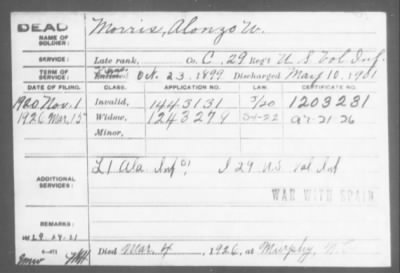 DEAD
NAME OF SOLDIER: Morris, Alonzo W.
SERVICE: Late rank, Co. C, 29 Reg't U S Vol Inf.
TERM OF SERVICE: Oct. 23, 1899 Discharged May 10, 1901
DATE OF FILING. CLASS. APPLICATION NO. LAW. CERTIFICATE NO.
1920 Nov. 1 Invalid, 1443131 1203231
1926 Mar. 15 Widow, 1243279
Minor,
ADDITIONAL SERVICES: L 1 Ala Inf I 29 U.S. Vol Inf
WAR WITH SPAIN
REMARKS:
Died Mar. 4, 1926, at Murphy, N.C.